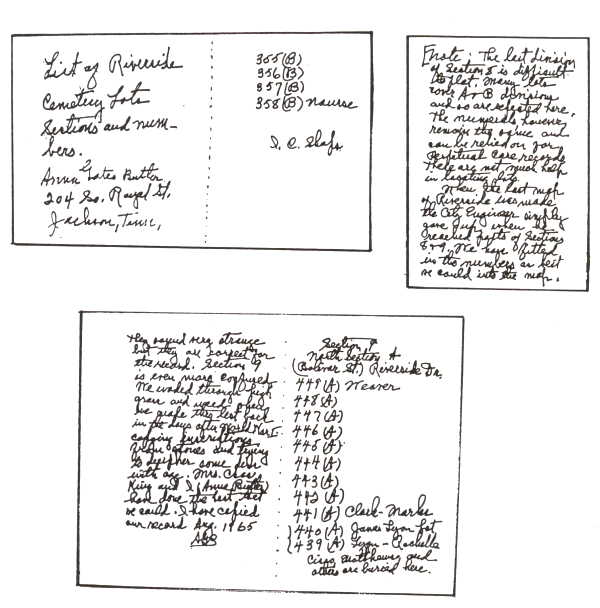 List of Riverside
Cemetery Lots
Sections and num-
bers.
Anna Gates Butler
204 So. Royal St.
Jackson, Tenn.
355(B)
356(B)
357(B)
358(B) Nourse
[Note: The last division
of Section 8 is difficult
to plat. Many lots
cover A & B divisions
and so are repeated here.
The numerals however
remain the same and
can be relied on for
Perpetual Care records.
These are not much help
in locating lots.
When the last map
of Riverside was made
the City Engineer simply
gave up when he
reached parts of Sections
8 & 9. We have fitted
in the numbers as best
we could into the map.
They sound very strange
but they are correct for
the record. Section 9
is even more confused
We waded through high
grass and weeds
we made this last
in the days after World War I
copying inscriptions
from stones and trying
to decipher some dim
with age. Mrs.
King and I (Anna Butler)
have done the best that
we could. I have copied
our record Aug. 1965
AGB
Section
North Section A
(Bolivar St.) Riverside Dr.
449(A) Weaver
448(A)
447(A)
446(A)
445(A)
444(A)
443(A)
442(A)
441(A) Clark-Marks
440(A) James Lyon lot
439(A) Lyon - Rochelle
Matthews and
others are buried here.